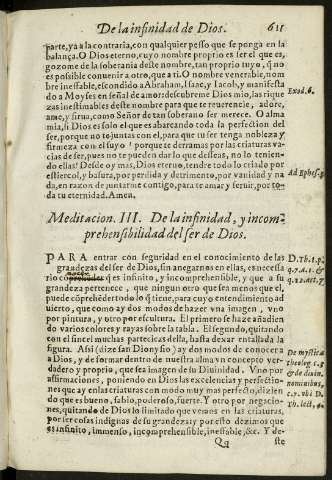 De la infinidad de Dios. 611
parte, ya a la contraria, con qualquier pesso que se ponga en la
balança. O Dios eterno, cuyo nombre proprio es ser el que es,
gozome de la soberania deste nombre, tan proprio tuyo, q̃ no
es possible conuenir a otro, que a ti. O nombre venerable, nom
bre ineffable, escondido a Abraham, Isaac, y Iacob, y manifesta
do a Moyses en señal de amor: descubreme Dios mio, las rique
zas inestimables deste nombre para que te reuerencie, adore,
Exod. 6.
ame, y sirua, como Señor de tan soberano ser merece. O alma
mia, si Dios es solo el que es abarcando toda la perfection del
ser, porque no te juntas con el, para que tu ser tenga nobleza y
firmeza con el suyo? porque te derramas por las criaturas va-
cias de ser, pues no te pueden dar lo que desseas, no lo tenien-
do ellas? Desde oy mas, Dios eterno, tendre todo lo criado por
estiercol, y basura, por perdida y detrimento, por vanidad y na
Ad Ephes. 3.
da, en razon de juntarme contigo, para te amar y seruir, por to-
da tu eternidad. Amen.
Meditacion. III. De la infinidad, y incom-
prehensibilidad del ser de Dios.
PARA entrar con seguridad en el conocimiento de las
grandezas del ser de Dios, sin anegarnos en ellas, es necessa
D. Th. 1. p.
rio q̃ es infinito, y incomprehensible, y que a su
q. 7. A. 1. &
grandeza pertenece, que ningun otro que sea menos que el,
q. 12. Art. 7.
puede cõprehẽder todo lo q̃ tiene, para cuyo entendimiento ad
uierto, que como ay dos modos de hazer vna imagen, vno
por pintura, y otro por escultura. El primero se haze añadien
do varios colores y rayas sobre la tabla. El segundo, quitando
con el sincel muchas partezicas della, hasta dexar entallada la
figura. Assi (dize san Dionysio) ay dos modos de conocer a
De mystica
a Dios, y de formar dentro de nuestra alma vn concepto ver-
theolog. c. 3.
dadero y proprio, que sea imagen de su Diuinidad. Vno por
& de diuin.
affirmaciones, poniendo en Dios las excelencias y perfectio-
nominibus,
nes que ay en las criaturas con modo muy mas perfecto, dizien
c. 7. vbi D.
do que es bueno, sabio, poderoso, fuerte. Y otro por negacio-
Th. lect. 4.
nes, quitando de Dios lo limitado que vemos en las criaturas,
por ser cosas indignas de su grandeza: y por esto dezimos que
es infinito, immenso, incomprehensible, ineffable, &c. Y de-
Qq ste